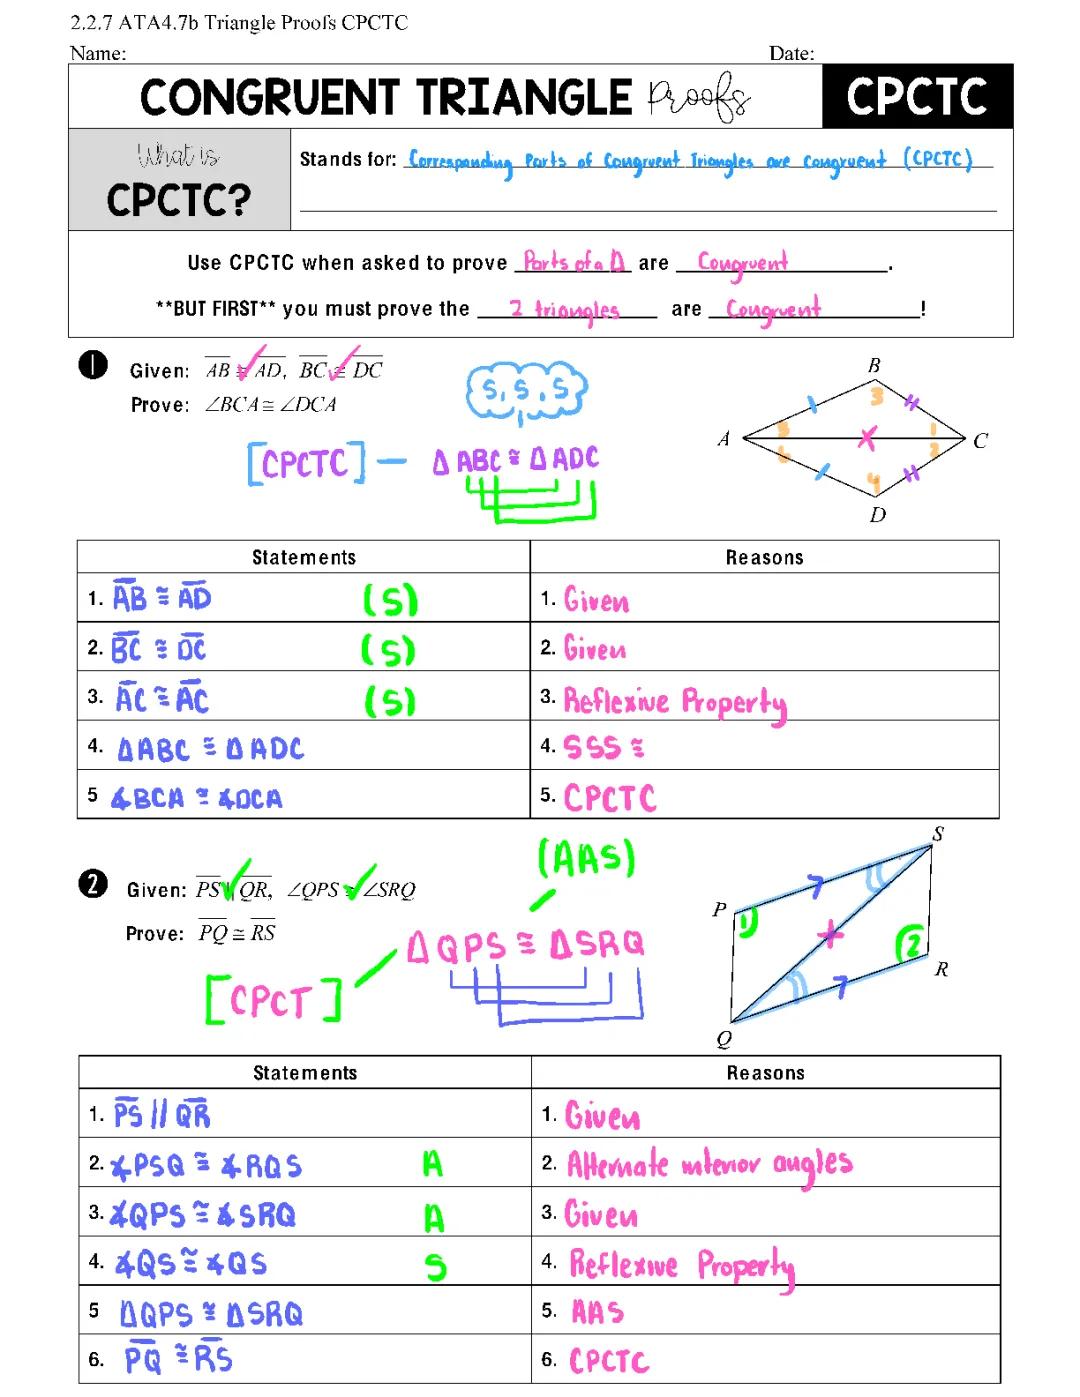 2.2.7 ATA4.7b Triangle Proofs CPCTC
Name: Date:
CONGRUENT TRIANGLE Proofs CPCTC
What is CPCTC?
Stands for: Corresponding Parts of Congruent Triangles are Congruent (CPCTC)
Use CPCTC when asked to prove Parts of a Δ are Congruent.
**BUT FIRST** you must prove the 2 triangles are Congruent!
1 Given: AB ≅ AD, BC ≅ DC
Prove: ∠BCA ≅ ∠DCA
S, S, S
[CPCTC] – Δ ABC ≅ Δ ADC
A B C D
3 3 1 2 4
Statements Reasons
1. AB ≅ AD (S) 1. Given
2. BC ≅ DC (S) 2. Given
3. AC ≅ AC (S) 3. Reflexive Property
4. ΔABC ≅ ΔADC 4. SSS ≅
5 ∡BCA ≅ ∡DCA 5. CPCTC
(AAS)
2 Given: PS ∥ QR, ∠QPS ≅ ∠SRQ
Prove: PQ ≅ RS
ΔQPS ≅ ΔSRQ
[CPCT]
S P R Q
1 2
Statements Reasons
1. PS // QR 1. Given
2. ∡PSQ ≅ ∡RQS A 2. Alternate interior angles
3. ∡QPS ≅ ∡SRQ A 3. Given
4. ∡QS ≅ ∡QS S 4. Reflexive Property
5 ΔQPS ≅ ΔSRQ 5. AAS
6. PQ ≅ RS 6. CPCTC